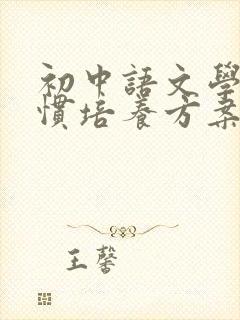 初中語文學
慣培養方案
王馨